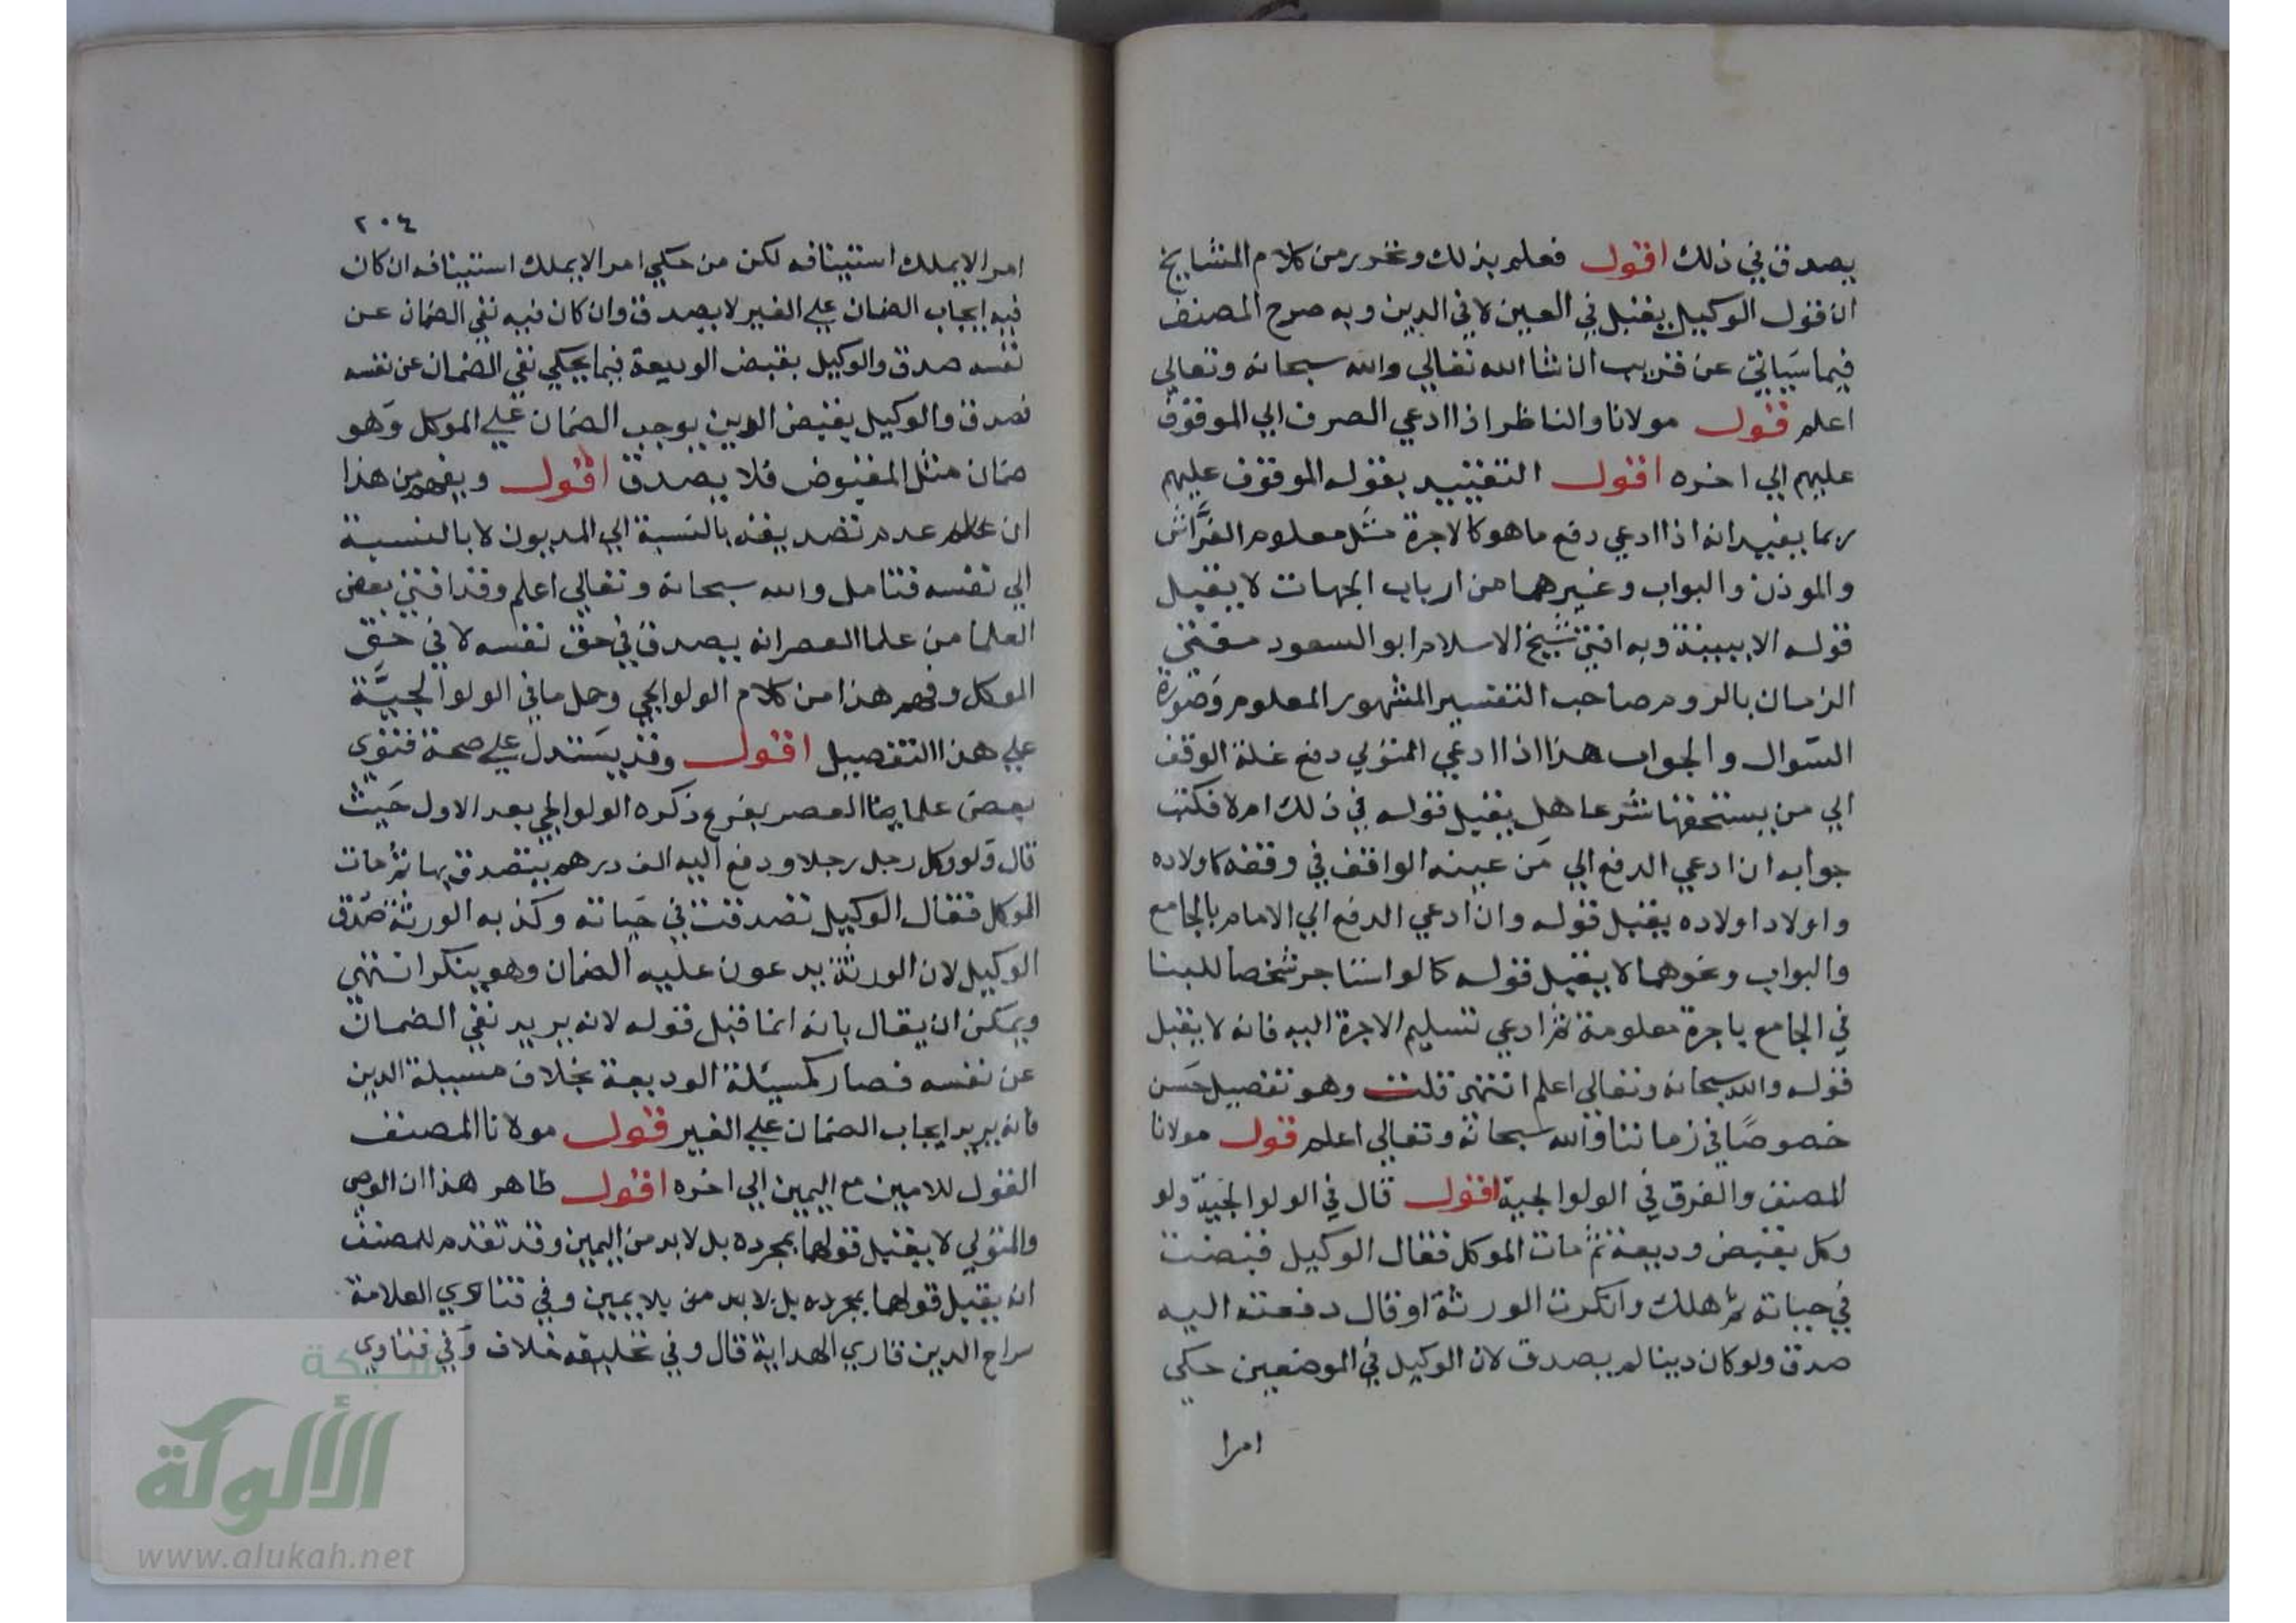 يصدق في ذلك اقول فعلم بذلك وتحرر من كلام المشايخ
ان قول الوكيل يقبل في العين لا في الدين وبه صرح المصنف
فيما سياتي عن قريب ان شا الله تعالي والله سبحانه وتعالي
اعلم قول مولانا والناظر اذا ادعي الصرف الي الموقوف
عليهم الي اخره اقول التقييد بقوله الموقوف عليهم
ربما يفيد انه اذا ادعي دفع ما هو كالاجرة مثل معلوم الفراش
والموذن والبواب وغيرهما من ارباب الجهات لا يقبل
قوله الا ببينة وبه افتي شيخ الاسلام ابو السعود مفتي
الزمان بالروم صاحب التفسير المشهور المعلوم وصورة
السوال والجواب هذا اذا ادعي المتولي دفع غلة الوقف
الي من يستحقها شرعا هل يقبل قوله في ذلك ام لا فكتب
جوابه ان ادعي الدفع الي من عينه الواقف في وقفه كاولاده
واولاد اولاده يقبل قوله وان ادعي الدفع الي الامام بالجامع
والبواب ونحوهما لا يقبل قوله كما لو استاجر شخصا للبنا
في الجامع باجرة معلومة ثم ادعي تسليم الاجرة اليه فانه لا يقبل
قوله والله سبحانه وتعالي اعلم انتهي قلت وهو تفصيل حسن
خصوصا في زماننا والله سبحانه وتعالي اعلم قول مولانا
المصنف والفرق في الولوالجية اقول قال في الولوالجية ولو
وكل بقبض وديعة ثم مات الموكل فقال الوكيل قبضت
في حياته ثم هلك وانكرت الورثة او قال دفعته اليه
صدق ولو كان دينا لم يصدق لان الوكيل في الموضعين حكي
امرا
٢٠٤
امرا لا يملك استينافه لكن من حكي امرا لا يملك استينافه ان كان
فيه ايجاب الضمان علي الغير لا يصدق وان كان فيه نفي الضمان عن
نفسه صدق والوكيل بقبض الوديعة فيما يحكي نفي الضمان عن نفسه
فصدق والوكيل بقبض الدين يوجب الضمان علي الموكل وهو
ضمان مثل المقبوض فلا يصدق اقول ويفهم من هذا
ان عدم تصديقه بالنسبة الي المديون لا بالنسبة
الي نفسه فتامل والله سبحانه وتعالي اعلم وقد افتي بعض
العلما من علما العصر انه يصدق في حق نفسه لا في حق
الموكل وفهم هذا من كلام الولوالجي وحمل ما في الولوالجية
علي هذا التفصيل اقول وقد يستدل علي صحة فتوي
بعض علماينا العصر بفرع ذكره الولوالجي بعد الاول حيث
قال ولو وكل رجل رجلا ودفع اليه الف درهم يتصدق بها ثم مات
الموكل فقال الوكيل تصدقت في حياته وكذبه الورثة صدق
الوكيل لان الورثة يدعون عليه الضمان وهو ينكر انتهي
ويمكن ان يقال بانه انما قبل قوله لانه يريد نفي الضمان
عن نفسه فصار كمسيلة الوديعة بخلاف مسيلة الدين
فانه يريد ايجاب الضمان علي الغير قول مولانا المصنف
القول للامين مع اليمين الي اخره اقول ظاهر هذا ان الوصي
والمتولي لا يقبل قولهما بمجرده بل لا بد من اليمين وقد تقدم للمصنف
انه يقبل قولهما بمجرده بل لا بد من بلا يمين وفي فتاوي العلامة
سراج الدين قاري الهداية قال وفي تحليفه خلاف وفي فتاوي
شبكة
الألوكة
www.alukah.net